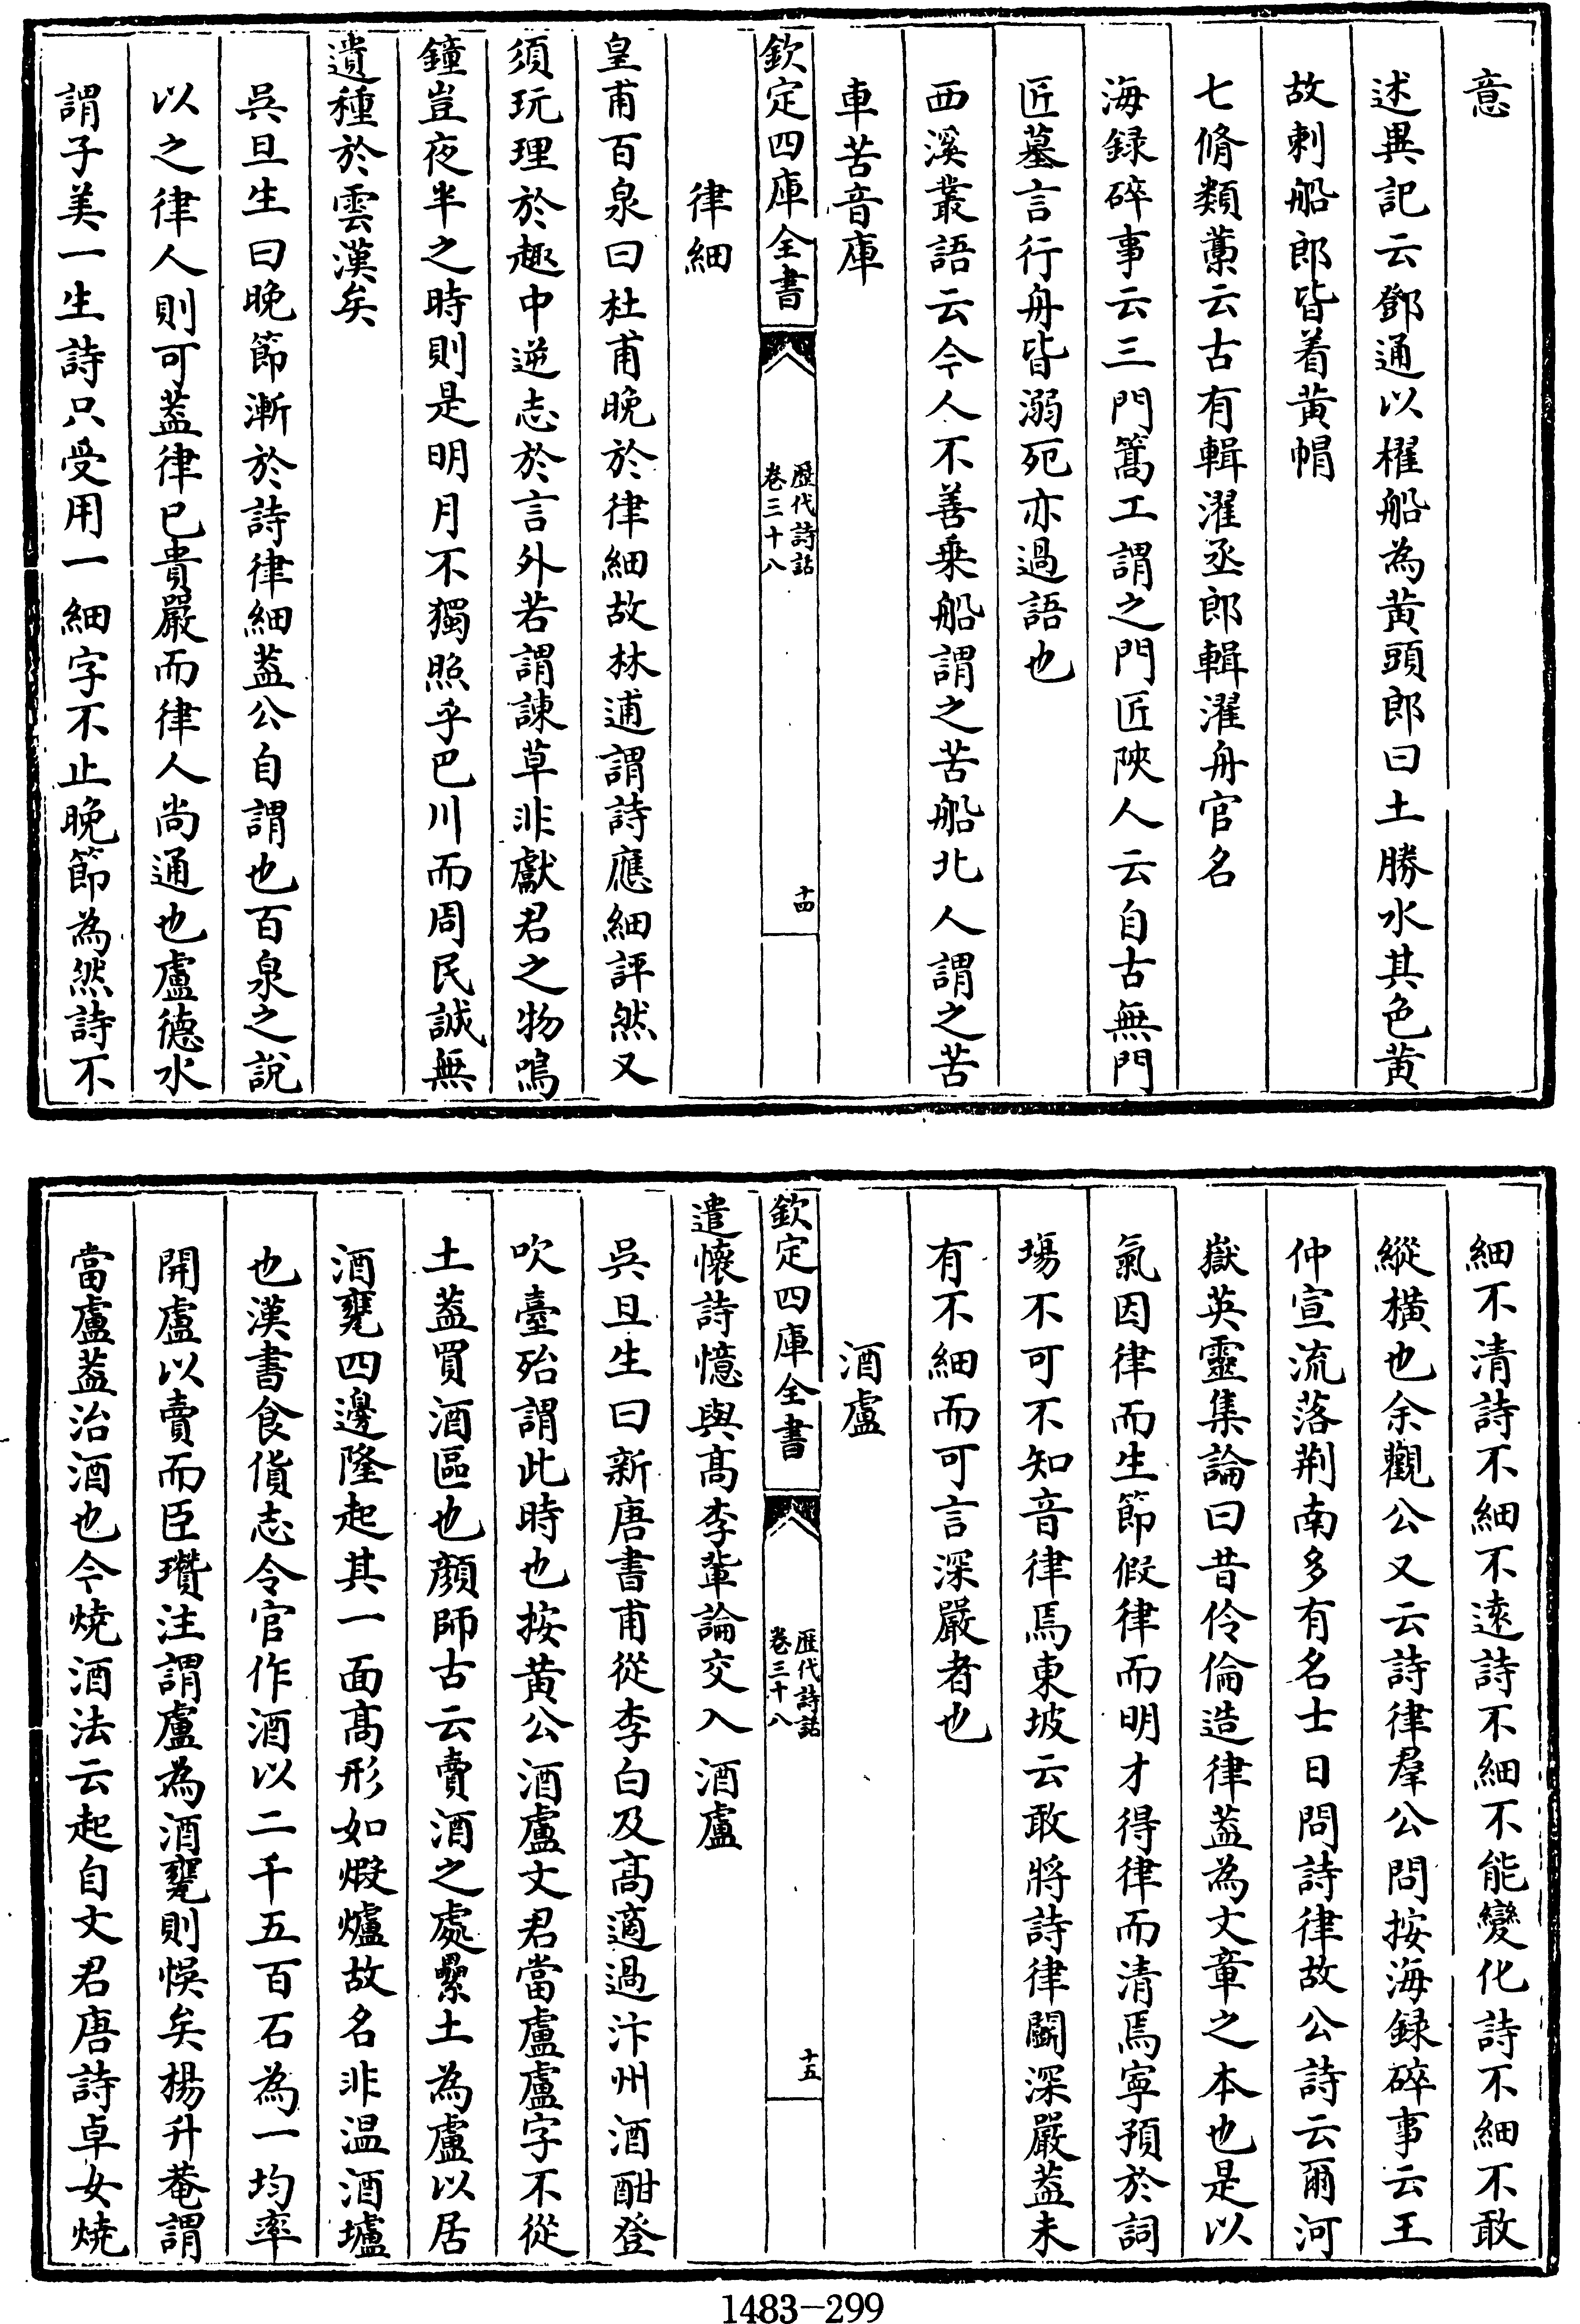 意
述異記云鄧通以櫂船為黄頭郎曰土勝水其色黄
故刺船郎皆着黄帽
七脩類藁云古有輯濯丞郎輯濯舟官名
海録碎事云三門篙工謂之門匠陜人云自古無門
匠墓言行舟皆溺死亦過語也
西溪叢語云今人不善乗船謂之苦船北人謂之苦
車苦音庫
欽定四庫全書
歴代詩話
卷三十八
十四
律細
皇甫百泉曰杜甫晚於律細故林逋謂詩應細評然又
須玩理於趣中逆志於言外若謂諫草非獻君之物鳴
鐘豈夜半之時則是明月不獨照乎巴川而周民誠無
遺種於雲漢矣
吳旦生曰晚節漸於詩律細葢公自謂也百泉之説
以之律人則可葢律已貴嚴而律人尚通也盧德水
謂子美一生詩只受用一細字不止晚節為然詩不
細不清詩不細不逺詩不細不能變化詩不細不敢
縱橫也余觀公又云詩律羣公問按海録碎事云王
仲宣流落荆南多有名士日問詩律故公詩云爾河
嶽英靈集論曰昔伶倫造律葢為文章之本也是以
氣因律而生節假律而明才得律而清焉寧預於詞
場不可不知音律焉東坡云敢將詩律鬬深嚴葢未
有不細而可言深嚴者也
酒盧
欽定四庫全書
歴代詩話
卷三十八
十五
遣懷詩憶與髙李輩論交入酒盧
吳旦生曰新唐書甫從李白及髙適過汴州酒酣登
吹臺殆謂此時也按黄公酒盧文君當盧盧字不從
土葢買酒區也顔師古云賣酒之處纍土為盧以居
酒甕四邊隆起其一面髙形如煅爐故名非温酒壚
也漢書食貨志令官作酒以二千五百石為一均率
開盧以賣而臣瓚注謂盧為酒甕則悞矣楊升菴謂
當盧葢治酒也今燒酒法云起自文君唐詩卓女燒
1483-299